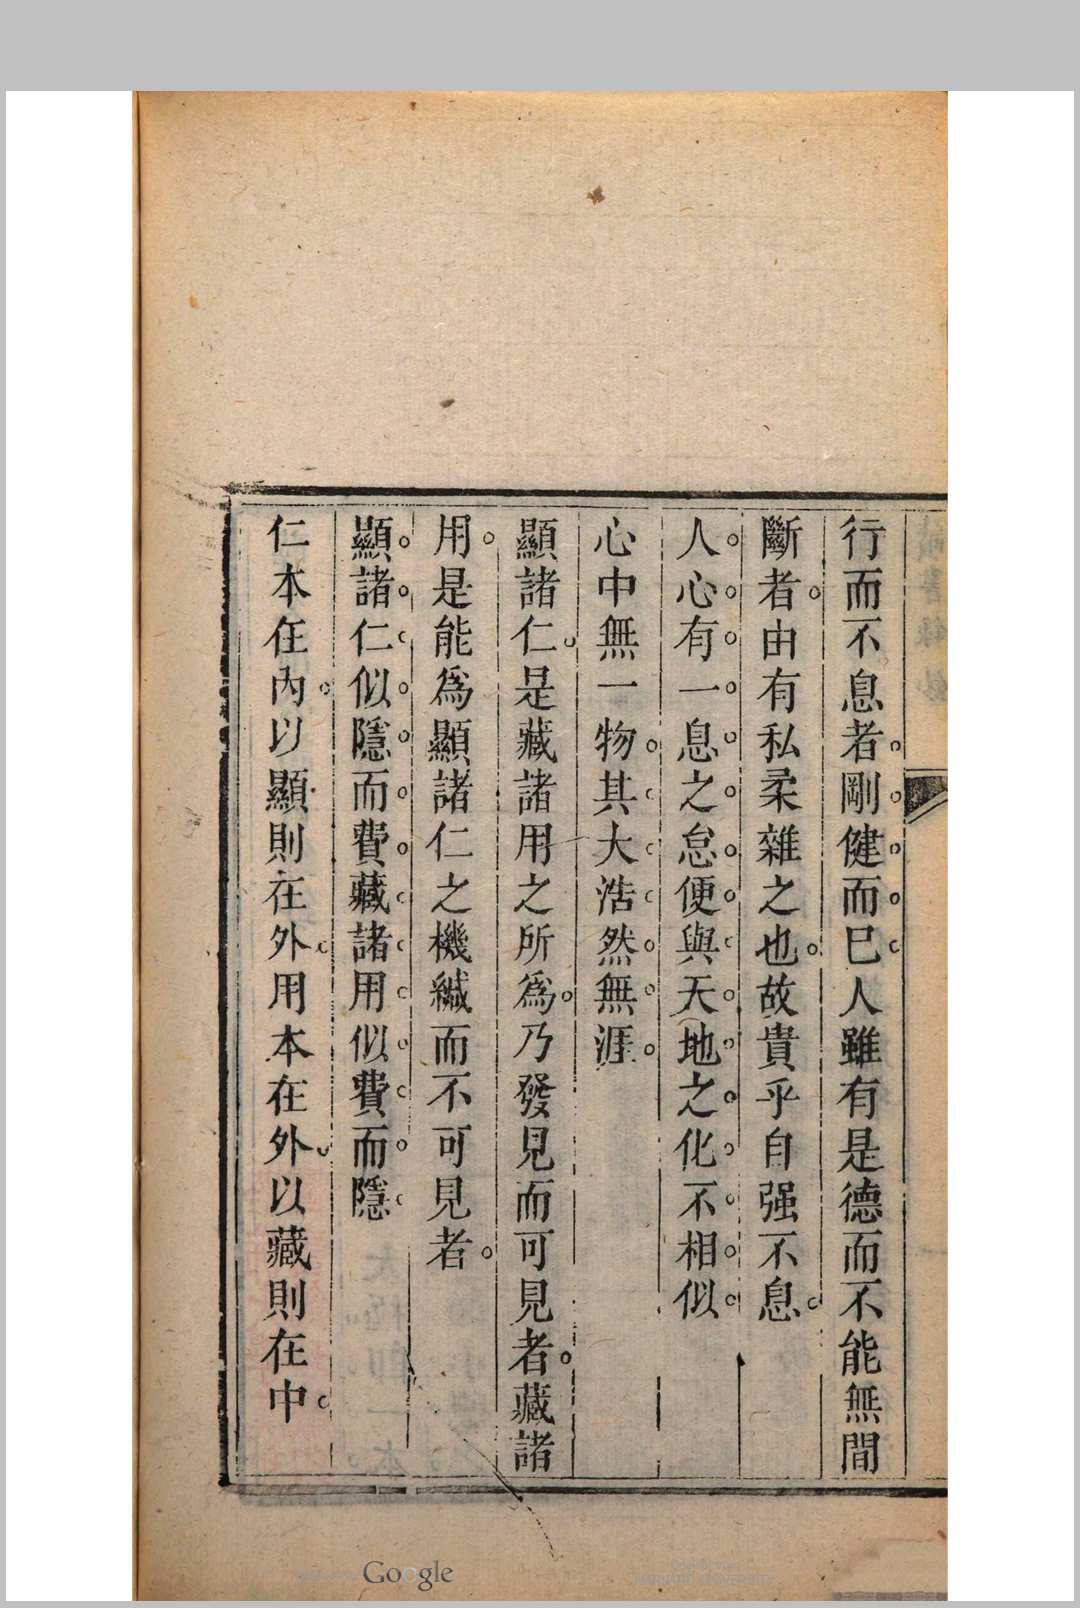 行而不息者剛健而已人雖有是德而不能無間
斷者由有私柔雜之也故貴乎自强不息
人心有一息之怠便與天地之化不相似
心中無一物其大浩然無涯
顯諸仁是藏諸用之所為乃發見而可見者藏諸
用是能為顯諸仁之機緘而不可見者
顯諸仁似隱而費藏諸用似費而隱
仁本在內以顯則在外用本在外以藏則在中
Google